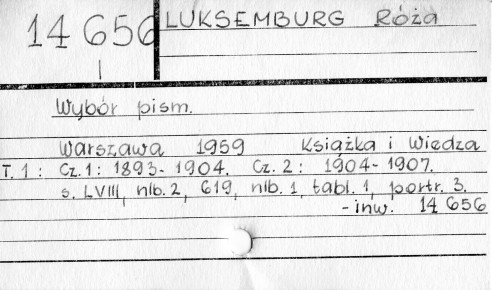 14 656
I
LUKSEMBURG Róża
Wybór pism.
Warszawa 1959 Książka i Wiedza
T. 1: Cz. 1: 1893-1904. Cz. 2: 1904-1907.
s. LVIII, nlb. 2, 619, nlb. 1, tabl. 1, portr. 3.
- inw. 14 656